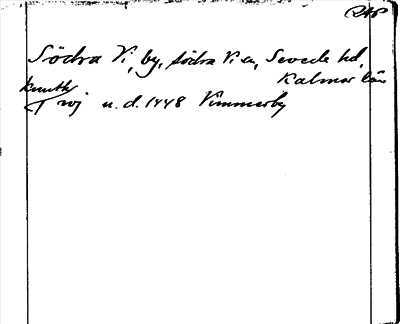 RAP
Södra Vi, by, södra Vi sn, Sevede hd,
Kalmar län
knuth
wj u. d. 1448 Vimmerby